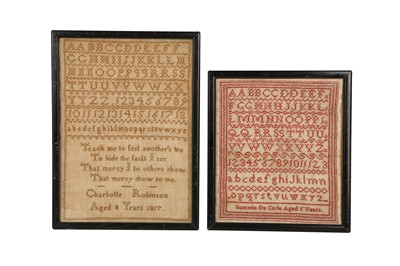 AABBCCDDEEFF
GGHHIIJJKKLL
MMNNOOPPQQRRSS
TTUUVVWWXX
YYZZ 123456789
10 11 12 13 14 15 16 17 18
abcdefghiklmnopqrstuvwxyz
Teach me to feel another's wo
To hide the fault I see
That mercy I to others show
That mercy show to me.
Charlotte Robinson
Aged 8 Years 1857.
AABBCCDDEEFF
GGHHIIJJKKLL
MMNNOOPP
QQRRSSTTUU
VVWWXXYYZZ
123456789 10 11 12
abcdefghijklmn
opqrstuvwxyz
De Carle Aged Years.